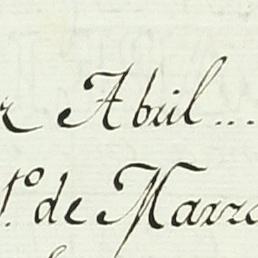 Abril...
1.º de Marzo